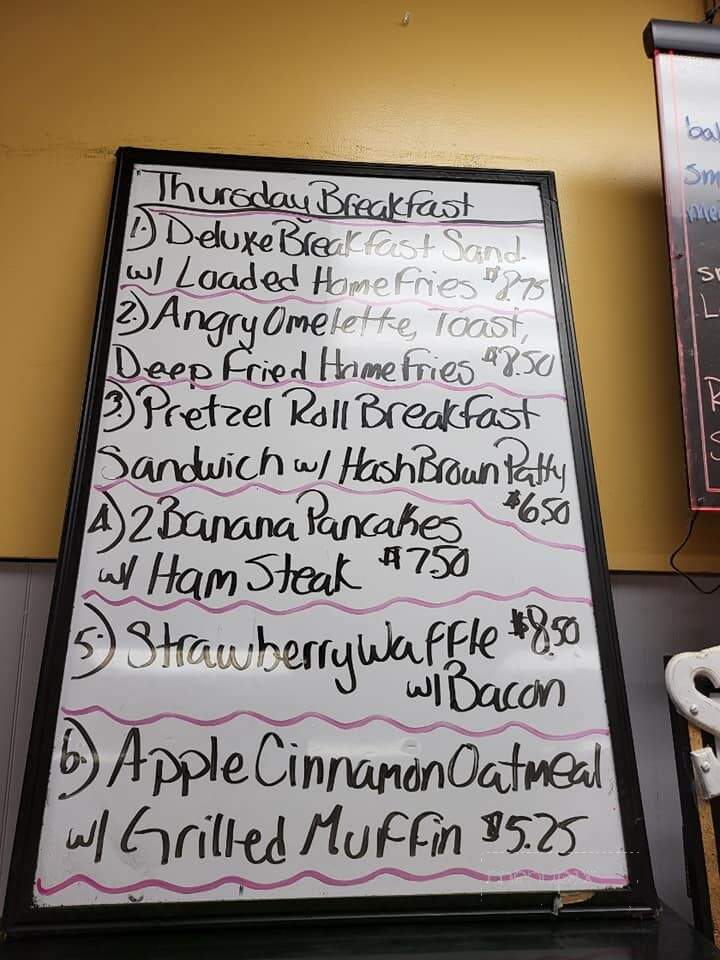 Thursday Breakfast
1.) Deluxe Breakfast Sand
w/ Loaded Home Fries $8.75
2.) Angry Omelette, Toast,
Deep Fried Home Fries $8.50
3.) Pretzel Roll Breakfast
Sandwich w/ Hash Brown Patty
$6.50
4.) 2 Banana Pancakes
w/ Ham Steak $7.50
5.) Strawberry Waffle $8.50
w/ Bacon
6.) Apple Cinnamon Oatmeal
w/ Grilled Muffin $5.25